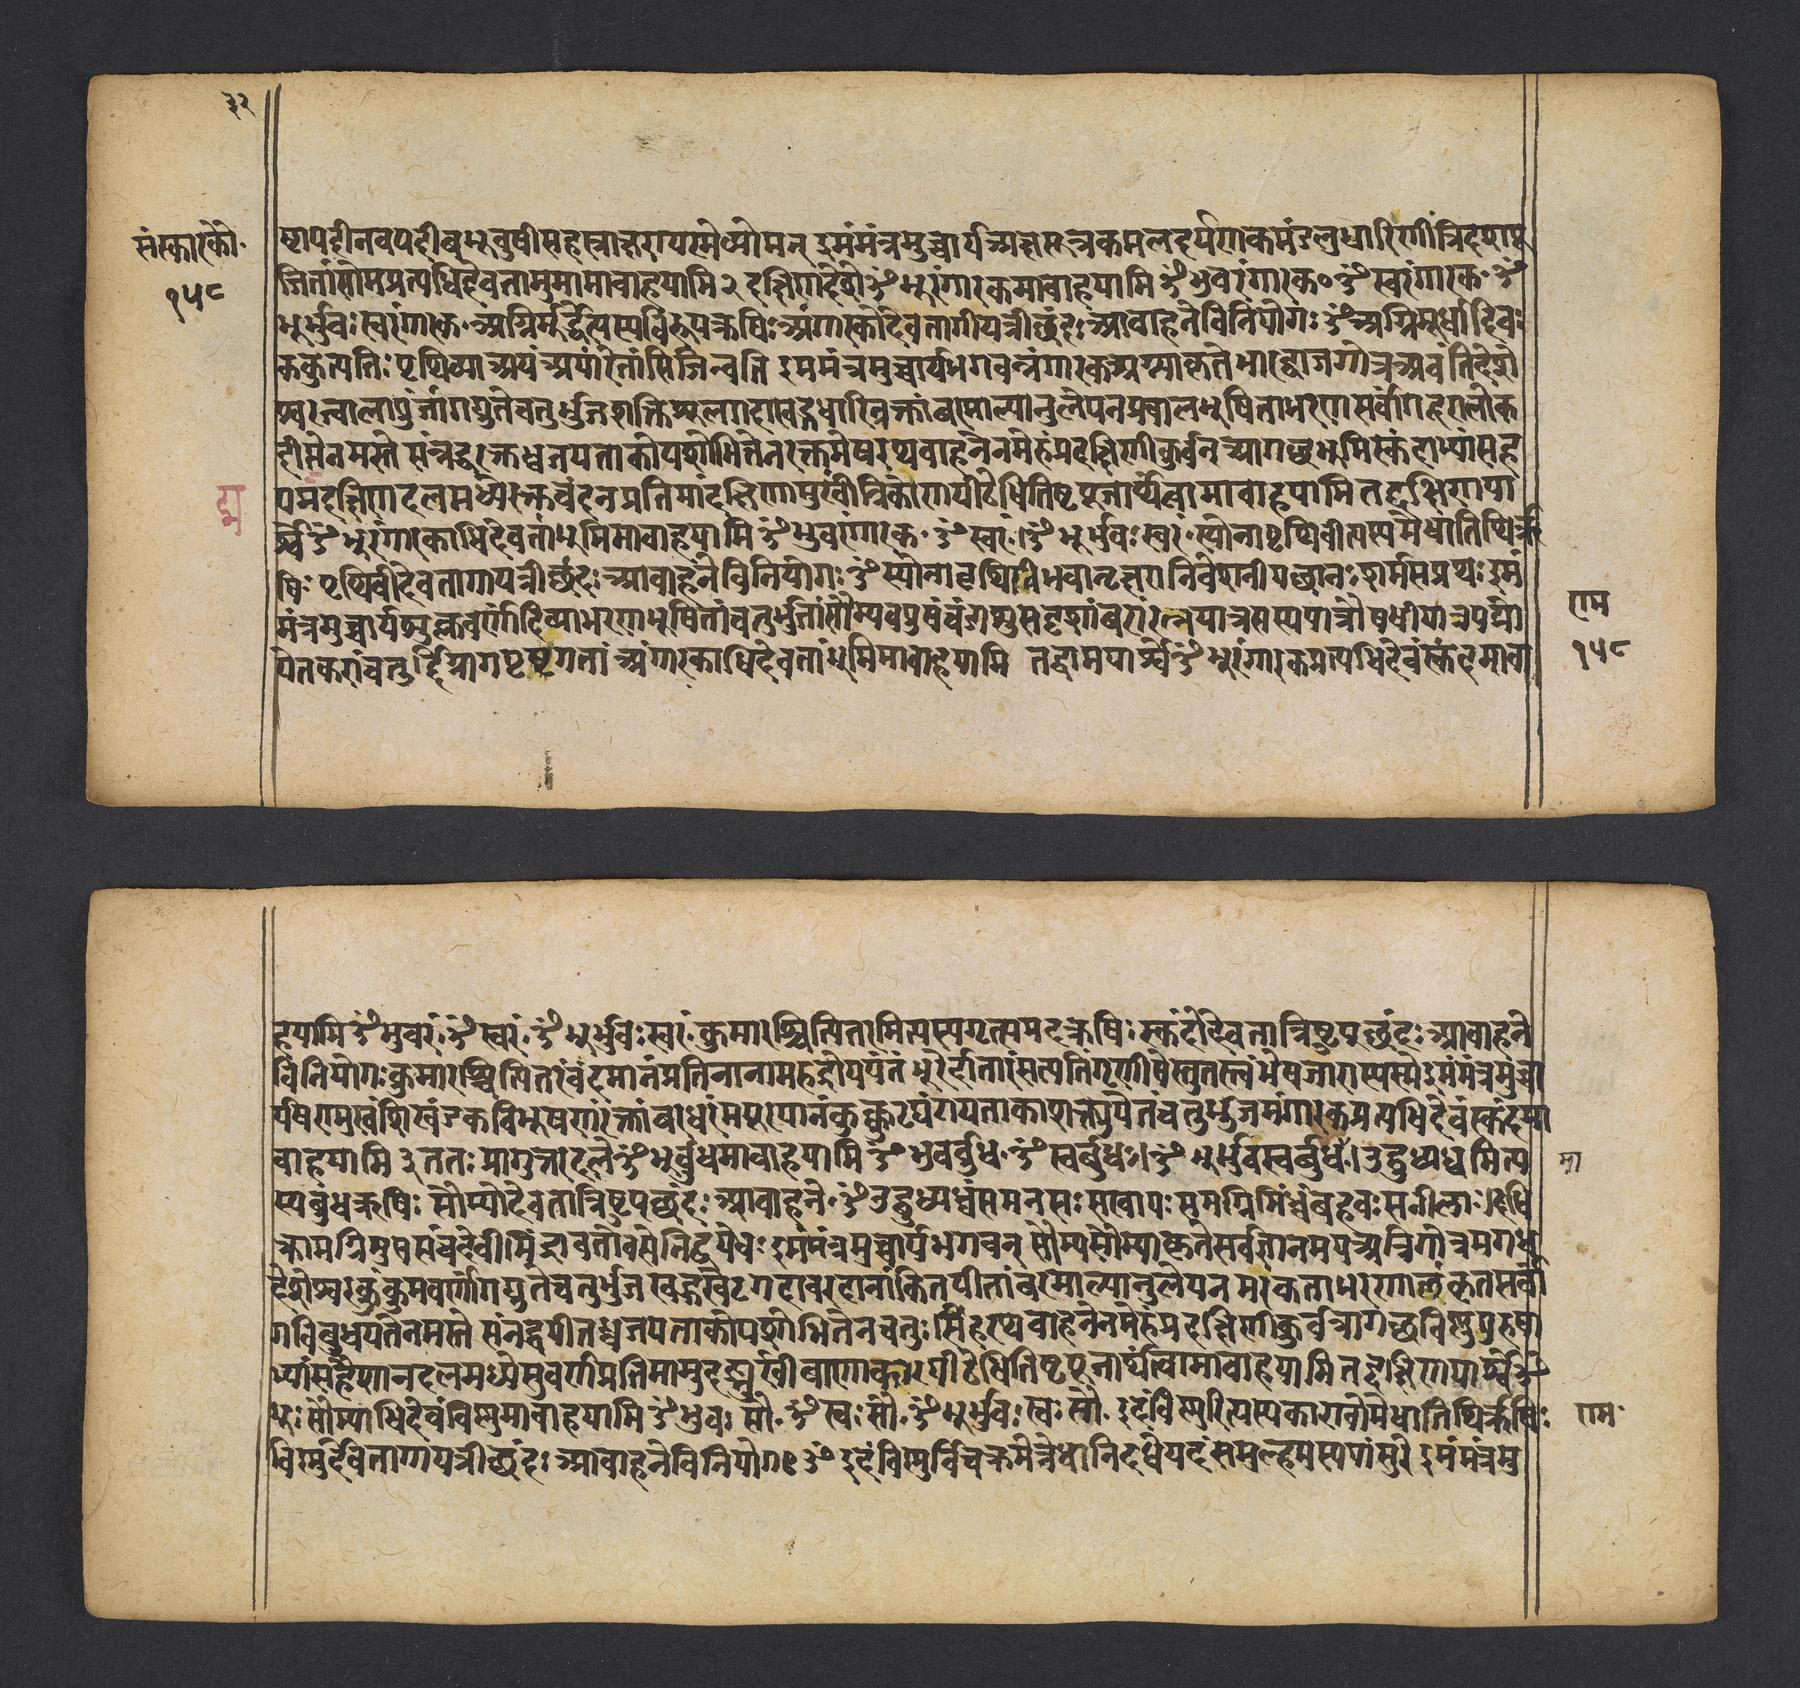 ३२
संस्कारकौ॰
१५८
ष्टापदीनवपदीबभूवुषीसहस्राक्षरापरमेव्योमन् इमंमंत्रमुच्चार्यअक्षसूत्रकमलदर्पणकमंडलुधारिणींत्रिदशपू
जितांसोमप्रत्यधिदेवतामुमामावाहयामि २ दक्षिणदले ॐ भूरंगारकमावाहयामि ॐ भुवरंगारक॰ ॐ स्वरंगारक॰ ॐ
भूर्भुवःस्वरंगारक॰ अग्निर्मूर्द्धेत्यस्यविरूपऋषिः अंगारकोदेवतागायत्रीछंदः आवाहनेविनियोगः ॐ अग्निमूर्धादिवः
ककुत्पतिः पृथिव्याअयं अपांरेतांसिजिन्वति इममंत्रमुच्चार्यभगवन्नंगारकअग्न्याकृतेभारद्वाजगोत्रअवंतिदेशे
श्वरज्वालापुंजांगद्युतेचतुर्भुजशक्तिशूलगदाखड्गधारिन्रक्तांबरमाल्यानुलेपनप्रवालभूषिताभरणसर्वांगहरालोक
दीप्तेनमस्ते संनद्धरक्तध्वजपताकोपशोभितेनरक्तमेषरथवाहनेनमेरुंप्रदक्षिणीकुर्वन् आगच्छभूमिस्कंदाभ्यांसह
पद्मदक्षिणदलमध्येरक्तचंदनप्रतिमांदक्षिणामुखींत्रिकोणपीठेधितिष्टपूजार्थंत्वामावाहयामि तद्दक्षिणपा
द्म
र्श्वे ॐ भूरंगारकाधिदेवतांभूमिमावाहयामि ॐ भुवरंगारक॰ ॐ स्वरं॰ । ॐ भूर्भुवः स्वरं॰ स्योनापृथिवीत्यस्यमेधातिथिरृ
षिः पृथिवीदेवतागायत्रीछंदः आवाहनेविनियोगः ॐ स्योनापृथिविभवानृक्षरानिवेशनीयछानःशर्मसप्रथः इमं
मंत्रमुच्चार्यशुक्लवर्णांदिव्याभरणभूषितांचतुर्भुजांसौम्यवपुषंचंडांशुसदृशांबरांरत्नपात्रसस्यपात्रौषधीपात्रपद्मो
पेतकरांचतुर्दिग्नागपृष्टगतां अंगारकाधिदेवतांभूमिमावाहयामि तद्वामपार्श्वे ॐ भूरंगारकप्रत्यधिदेवंस्कंदमावा
राम
१५८
हयामि ॐ भुवरं॰ ॐ स्वरं॰ ॐ भूर्भुवःस्वरं॰ कुमारश्चित्पितरमित्यस्यगृत्समदऋषिः स्कंदोदेवतात्रिष्टुप्छंदः आवाहने
विनियोगःकुमारश्चित्पितरंवंदमानंप्रतिनानामरुद्रोपयंतं भूरेर्दातारंसत्पतिंगृणीषेस्तुतस्त्वंभेषजारास्यस्मे इमंमंत्रमुच्चा
र्यषण्मुखंशिखंडकविभूषणंरक्तांबरधरंमयूरयानंकुक्कुटघंटापताकाशक्त्युपेतंचतुर्भुजमंगारकप्रत्यधिदेवंस्कंदमा
वाहयामि ३ ततः प्रागुत्तरदले ॐ भूर्बुधमावाहयामि ॐ भुवर्बुध॰ ॐ स्वर्बुध॰ । ॐ भूर्भुवस्वर्बुधं । उद्बुध्यध्वमित्य
मा
स्यबुधऋषिः सौम्योदेवतात्रिष्टुप्छंदः आवाहने॰ ॐ उद्बुध्यध्वंसमनसः सखायः समग्निमिंध्वंबहवः सनीलाः । दधि
क्रामग्निमुषसंचदेवीमिंद्रावतोवसेनिह्वयेवः इमंमंत्रमुच्चार्यभगवन् सौम्यसौम्याकृतेसर्वज्ञानमयअत्रिगोत्रमगध
देशेश्वरकुंकुमवर्णांगद्युतेचतुर्भुजखड्गखेटगदावरदानांकितपीतांबरमाल्यानुलेपनमरकताभरणालंकृतसर्वां
गविबुधपतेनमस्ते संनद्धपीतध्वजपताकोपशोभितेनचतुःसिंहरथेवाहनेनमेरुंप्रदक्षिणीकुर्वन्नागच्छविष्णुपुरुषा
भ्यांसहैशानदलमध्येसुवर्णप्रतिमामुदङ्मुखींबाणाकारपीठेधितिष्टपूजार्थंत्वामावाहयामितद्दक्षिणपार्श्वे ॐ
भूः सौम्याधिदेवंविष्णुमावाहयामि ॐ भुवः सौ॰ ॐ स्वः सौ॰ ॐ भूर्भुवः स्वः सौ॰ इदंविष्णुरित्यस्यकाण्वोमेधातिथिरृषिः
राम॰
विष्णुर्देवतागायत्रीछंदः आवाहनेविनियोगः ॐ इदंविष्णुर्विचक्रमेत्रेधानिदधेपदं समूल्हमस्यपांसुरे इमंमंत्रमु